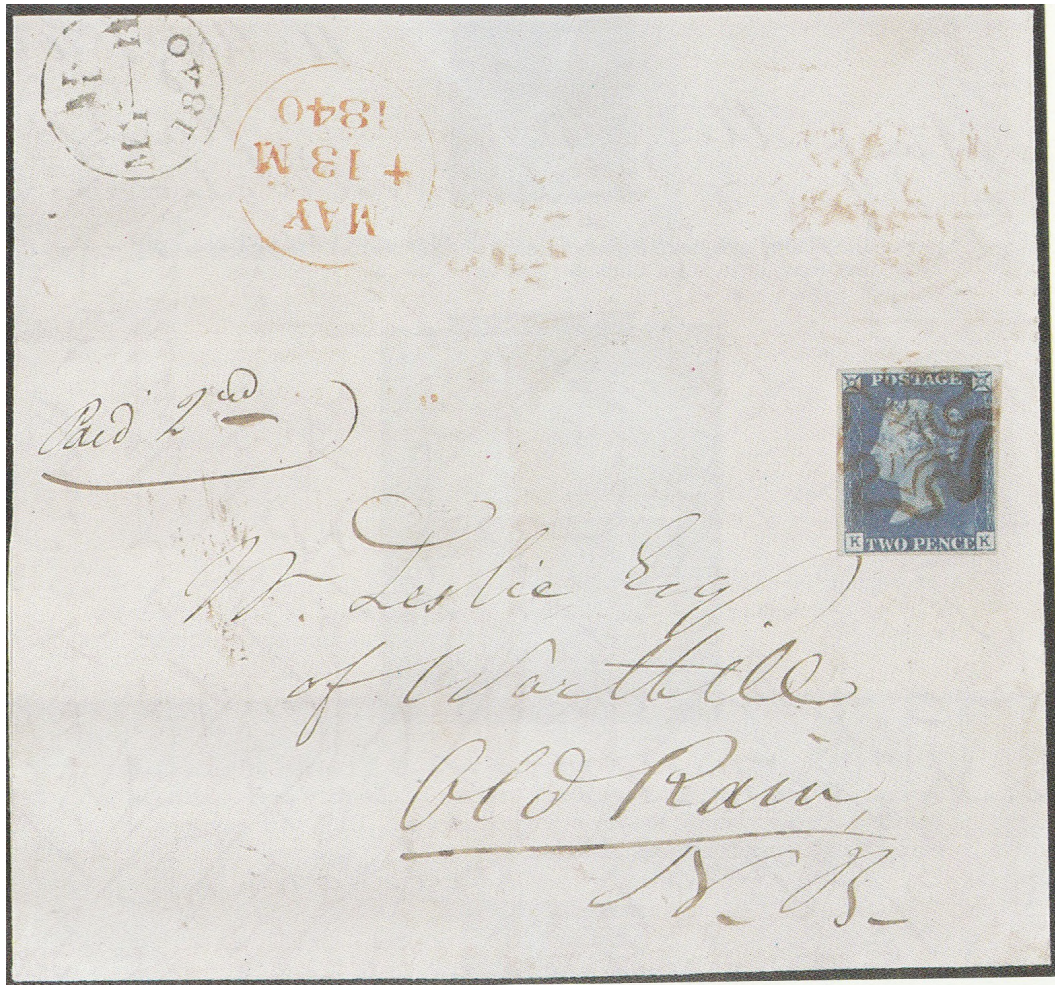 1840
MAY
+ 13 M
1840
Paid 2nd
POSTAGE
K TWO PENCE K
W. Leslie Esq
of Warthill
Old Rain
N. B.